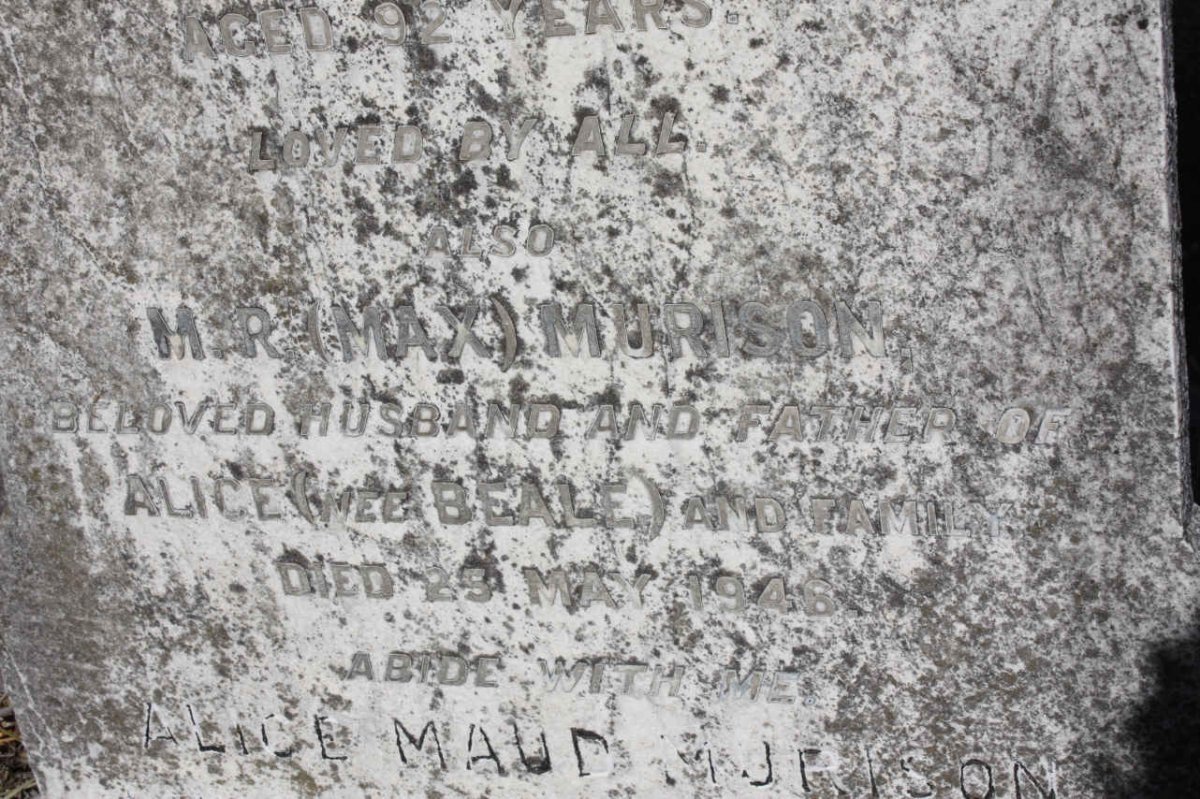 AGED 92 YEARS.
LOVED BY ALL.
ALSO
M.R.(MAX) MURISON,
BELOVED HUSBAND AND FATHER OF
ALICE (NEE BEALE) AND FAMILY
DIED 25 MAY 1946
ABIDE WITH ME.
ALICE MAUD MURISON